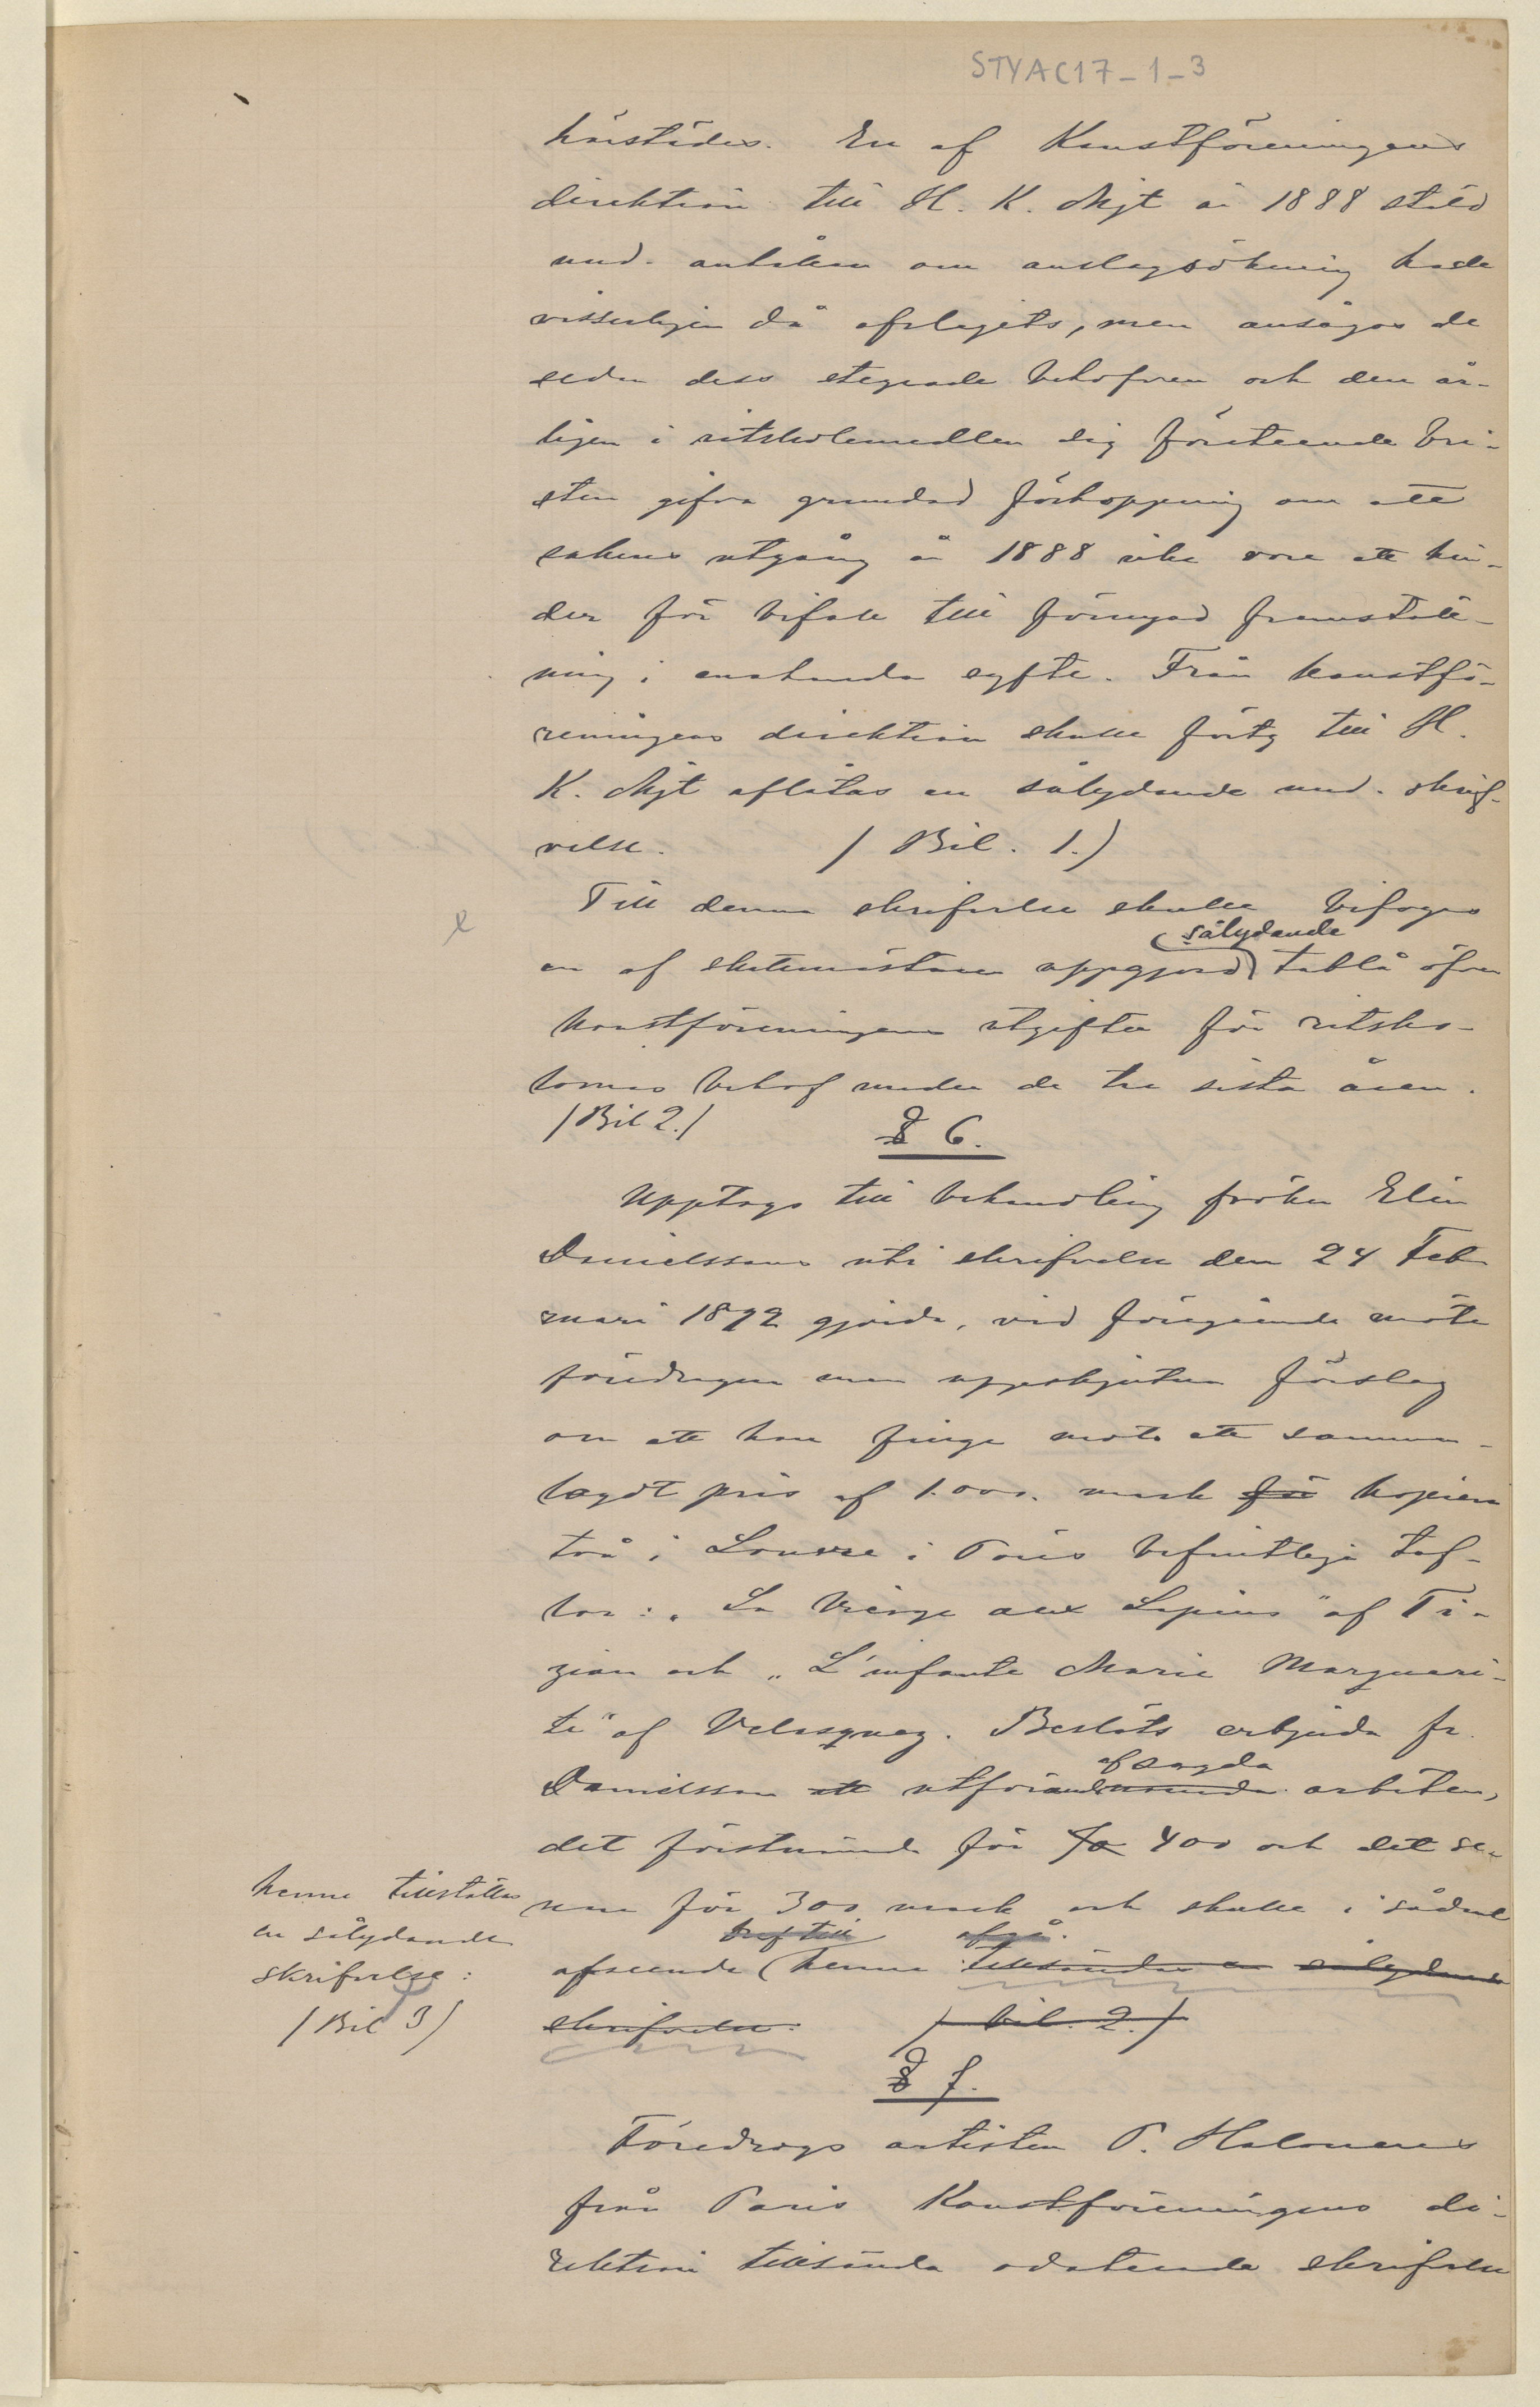 STYAC17-1-3
härstädes. En af Konstföreningens
direktion till H. K. Majt år 1888 stäld
und. anhållan om anslagsökning hade
visserligen då afslagits, men ansågos de
sedan dess stegrade behofven och den år-
ligen i ritskolemedlen sig företeende bri-
sten gifva grundad förhoppning om att
sakens utgång år 1888 icke vore ett hin-
der för bifall till förnyad framställ-
ning i enahanda syfte. Från konstfö-
reningens direktion skulle förty till H.
K. Majt aflåtas en sålydande und. skrif-
velse. / Bil. 1.)
Till denna skrifvelse skulle bifogas
sålydande
en af skattmästaren uppgjord tablå öfver
konstföreningens utgifter för ritsko-
lornas behof under de tre sista åren.
/ Bil 2./
§ 6.
Upptogs till behandling fröken Elin
Danielssons uti skrifvelse den 24 Feb-
ruari 1892 gjorda, vid föregående möte
föredragna men uppskjutna förslag
om att hon finge mot ett samman-
lagdt pris af 1.000. mark för kopiera
två i Louvre i Paris befintliga taf-
lor: „La Vierge aux Lapins" af Ti-
zian och „L'infante Marie Marguari-
te" af Velasquez. Beslöts erbjuda fr.
af sagda
Danielsson att utförande nämnda arbeten,
det förstnämnda för 400 och det se-
nare för 300 mark och skulle i sådant
bref till afgå.
afseende henne tillsändas en sålydande
skrifvelse: / bil. 2./
henne tillställas
en sålydande
skrifvelse:
/ Bil 3/
§ 7.
Föredrogs artisten P. Halonens
från Paris Konstföreningens di-
rektion tillsända odaterade skrifvelse